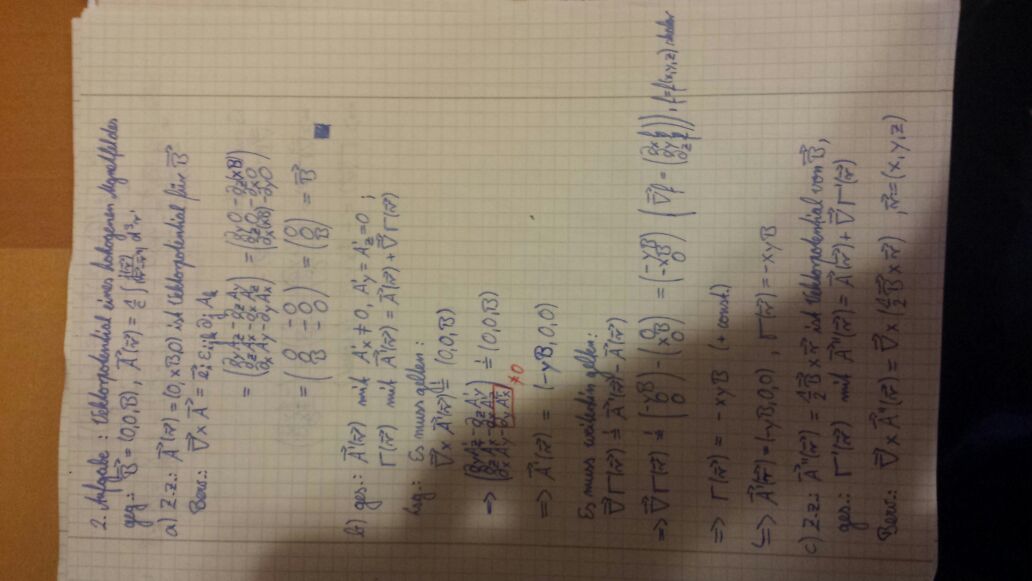 2. Aufgabe: Vektorpotential eines homogenen Magnetfeldes
geg.: B⃗ = (0,0,B), A⃗(r⃗) = 1/c ∫ j⃗(r⃗')/|r⃗-r⃗'| d³r'
a) Z.z.: A⃗(r⃗) = (0, xB, 0) ist Vektorpotential für B⃗
Bew.: ∇⃗ × A⃗ = e⃗ᵢ εᵢⱼₖ ∂ⱼ Aₖ
= (∂yAz - ∂zAy, ∂zAx - ∂xAz, ∂xAy - ∂yAx) = (∂y0 - ∂z(xB), ∂z0 - ∂x0, ∂x(xB) - ∂y0)
= (0 - 0, 0 - 0, B - 0) = (0, 0, B) = B⃗
b) ges.: A⃗'(r⃗) mit A'x ≠ 0, A'y = A'z = 0 ;
Γ(r⃗) mit A⃗'(r⃗) = A⃗(r⃗) + ∇⃗Γ(r⃗)
Es muss gelten:
∇⃗ × A⃗'(r⃗) != (0,0,B)
=> (∂yA'z - ∂zA'y, ∂zA'x - ∂xA'z, ∂xA'y - ∂yA'x) != (0,0,B)
≠0
=> A⃗'(r⃗) = (-yB, 0, 0)
Es muss weiterhin gelten:
∇⃗Γ(r⃗) != A⃗'(r⃗) - A⃗(r⃗)
=> ∇⃗Γ(r⃗) != (-yB, 0, 0) - (0, xB, 0) = (-yB, -xB, 0) (∇⃗f = (∂xf, ∂yf, ∂zf)), f = f(x,y,z) skalar
=> Γ(r⃗) = -xyB (+ const.)
=> A⃗'(r⃗) = (-yB,0,0), Γ(r⃗) = -xyB
c) Z.z.: A⃗''(r⃗) = 1/2 B⃗ × r⃗ ist Vektorpotential von B⃗,
ges.: Γ'(r⃗) mit A⃗''(r⃗) = A⃗(r⃗) + ∇⃗Γ'(r⃗)
Bew.: ∇⃗ × A⃗''(r⃗) = ∇⃗ × (1/2 B⃗ × r⃗) , r⃗ = (x,y,z)